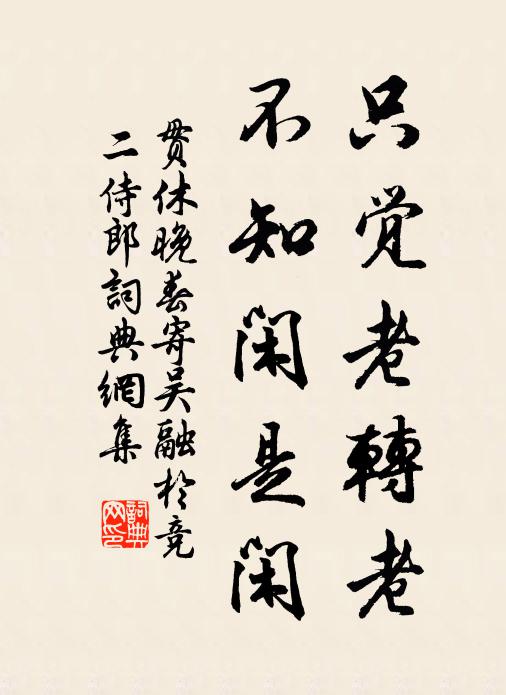 只觉老轉老
不知闲是闲
贯休晚春寄吴融於竞
二侍郎詞典網集
詞典网印